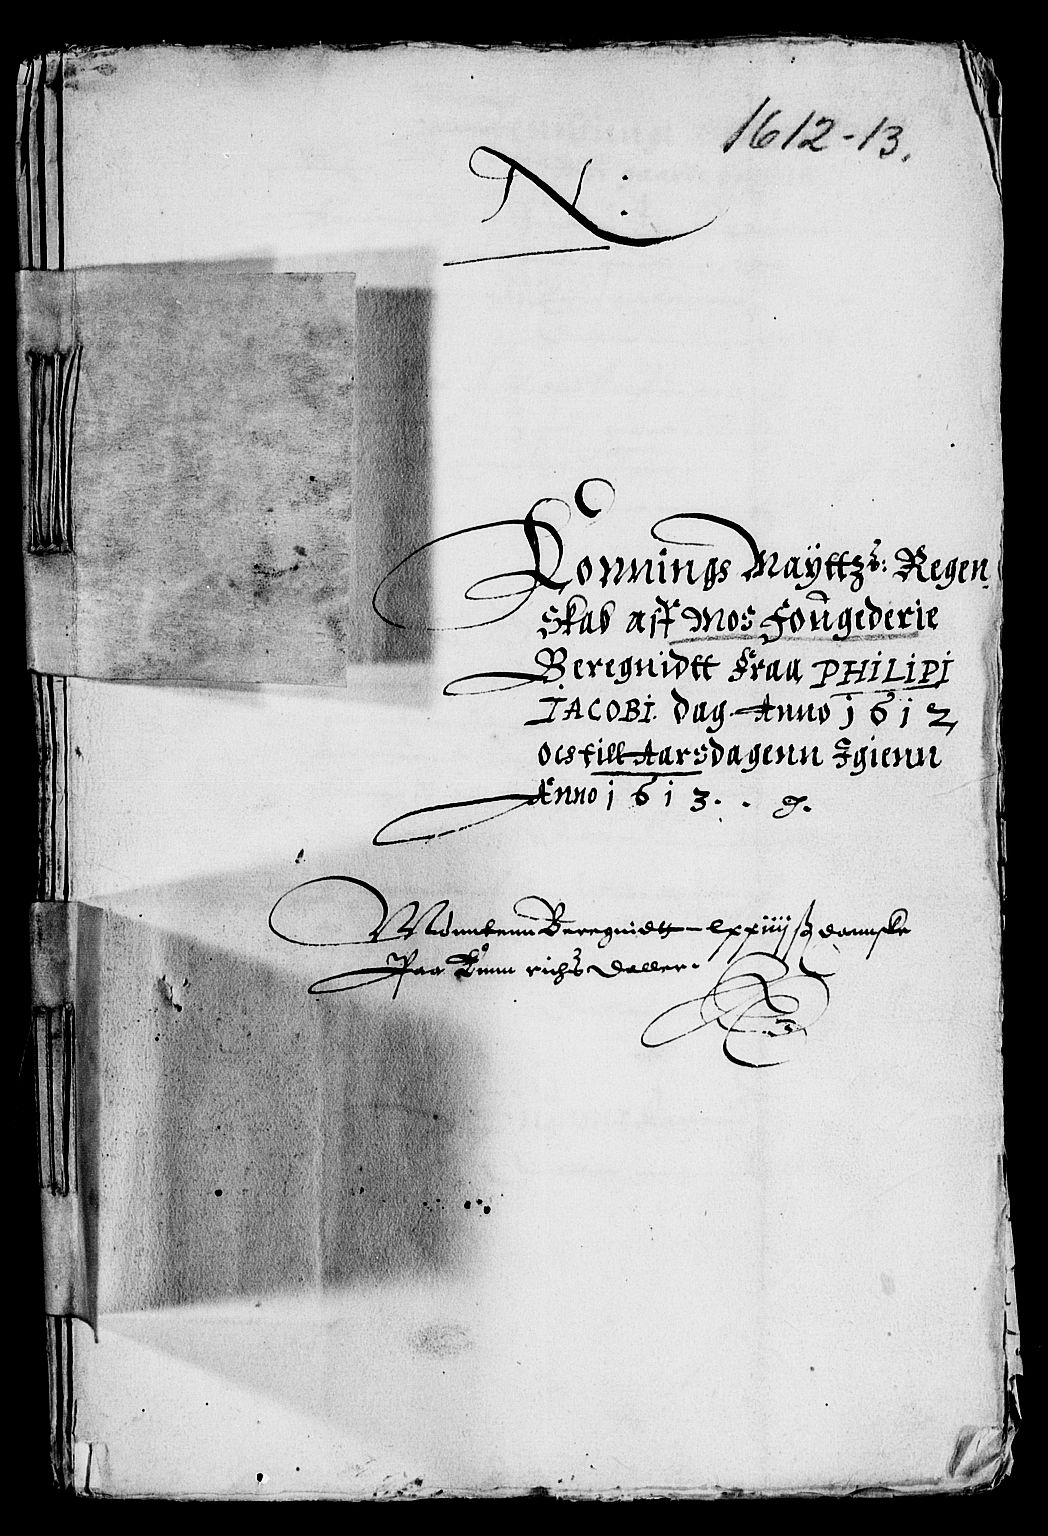 1612-13.
N:
Konnings Mayttz: Regen
Skab aff Mos Fougederie
Beregnidtt Fraa PHILIPI
IACOBI. dag Anno 1612
och till Aarsdagenn Igienn
Anno 1613.
Mynntenn Beregnidtt lxxiiij ß dannske
Paa Enn richs Daller.